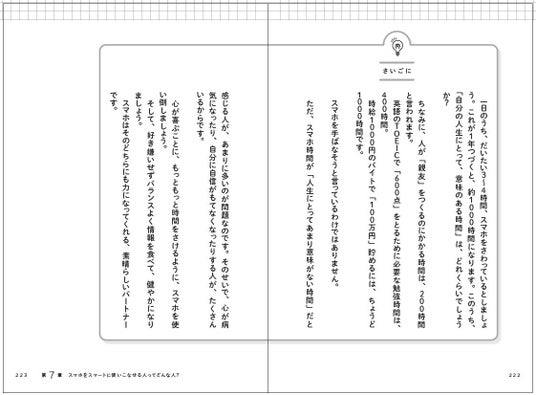 さいごに
一日のうち、だいたい3〜4時間、スマホをさわっているとしましょ
う。これが1年つづくと、約1000時間になります。このうち、
「自分の人生にとって、意味のある時間」は、どれくらいでしょう
か？
ちなみに、人が「親友」をつくるのにかかる時間は、200時間
と言われます。
英語のTOEICで「600点」をとるために必要な勉強時間は、
400時間。
時給1000円のバイトで「100万円」貯めるには、ちょうど
1000時間です。
スマホを手ばなそうと言っているわけではありません。
ただ、スマホ時間が「人生にとってあまり意味がない時間」だと
感じる人が、あまりに多いのが問題なのです。そのせいで、心が病
気になったり、自分に自信がもてなくなったりする人が、たくさん
いるからです。
心が喜ぶことに、もっともっと時間をさけるように、スマホを使
い倒しましょう。
そして、好き嫌いせずバランスよく情報を食べて、健やかになり
ましょう。
スマホはそのどちらにも力になってくれる、素晴らしいパートナー
です。
222
223 第7章 スマホをスマートに使いこなせる人ってどんな人？